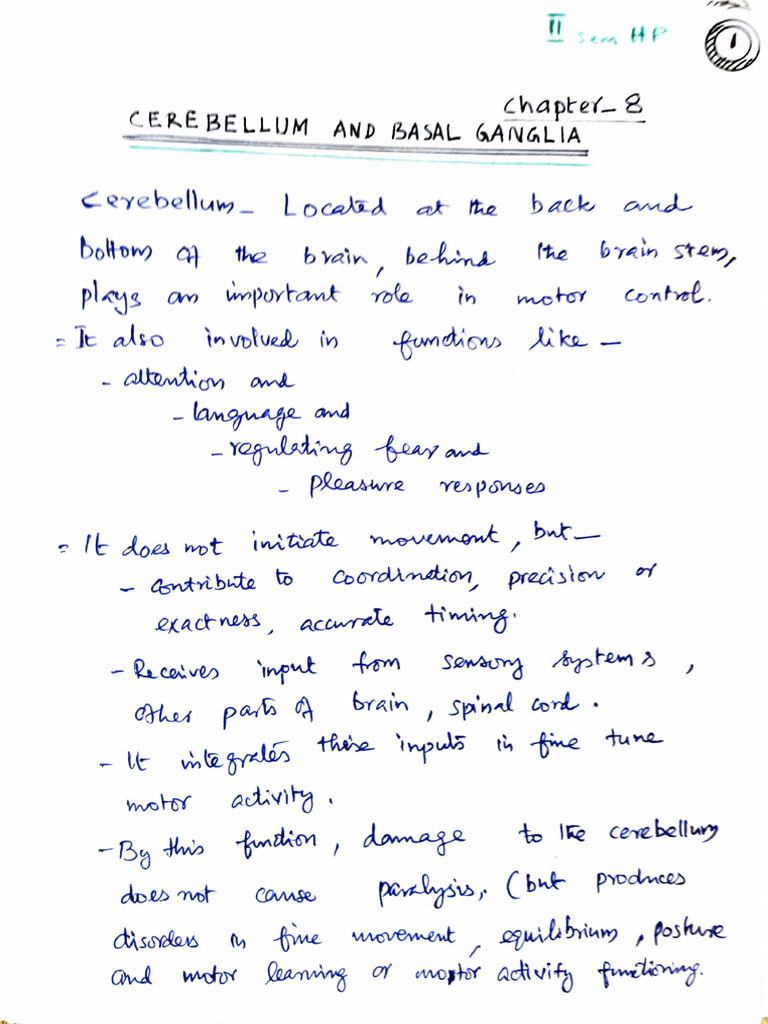 II sem HP
1
Chapter-8
CEREBELLUM AND BASAL GANGLIA
Cerebellum - Located at the back and
bottom of the brain, behind the brain stem,
plays an important role in motor control.
= It also involved in functions like -
- attention and
- language and
- regulating fear and
- pleasure responses
= It does not initiate movement, but -
- contribute to coordination, precision or
exactness, accurate timing.
- Receives input from sensory systems,
other parts of brain, spinal cord.
- It integrates these inputs in fine tune
motor activity.
- By this function, damage to the cerebellum
does not cause paralysis, (but produces
disorders in fine movement, equilibrium, posture
and motor learning or motor activity functioning.